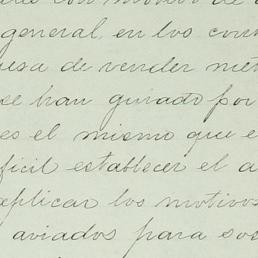 con motivo de
general, en los con
esa de vender me
se han guiado por
es el mismo que e
fícil establecer el a
xplicar los motivos
aviados para sos